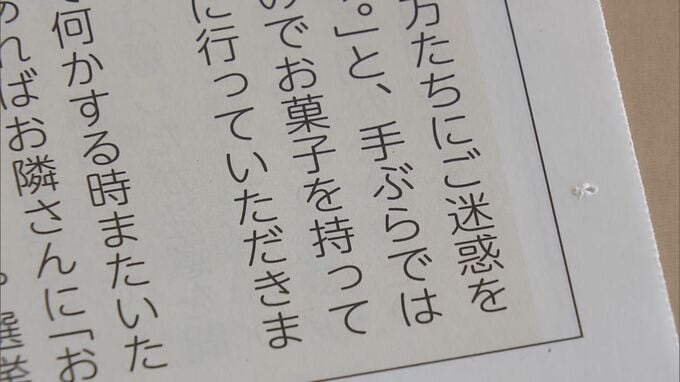 方たちにご迷惑を
。」と、手ぶらでは
のでお菓子を持って
に行っていただきま
で何かする時またいた
あればお隣さんに「お
。選挙